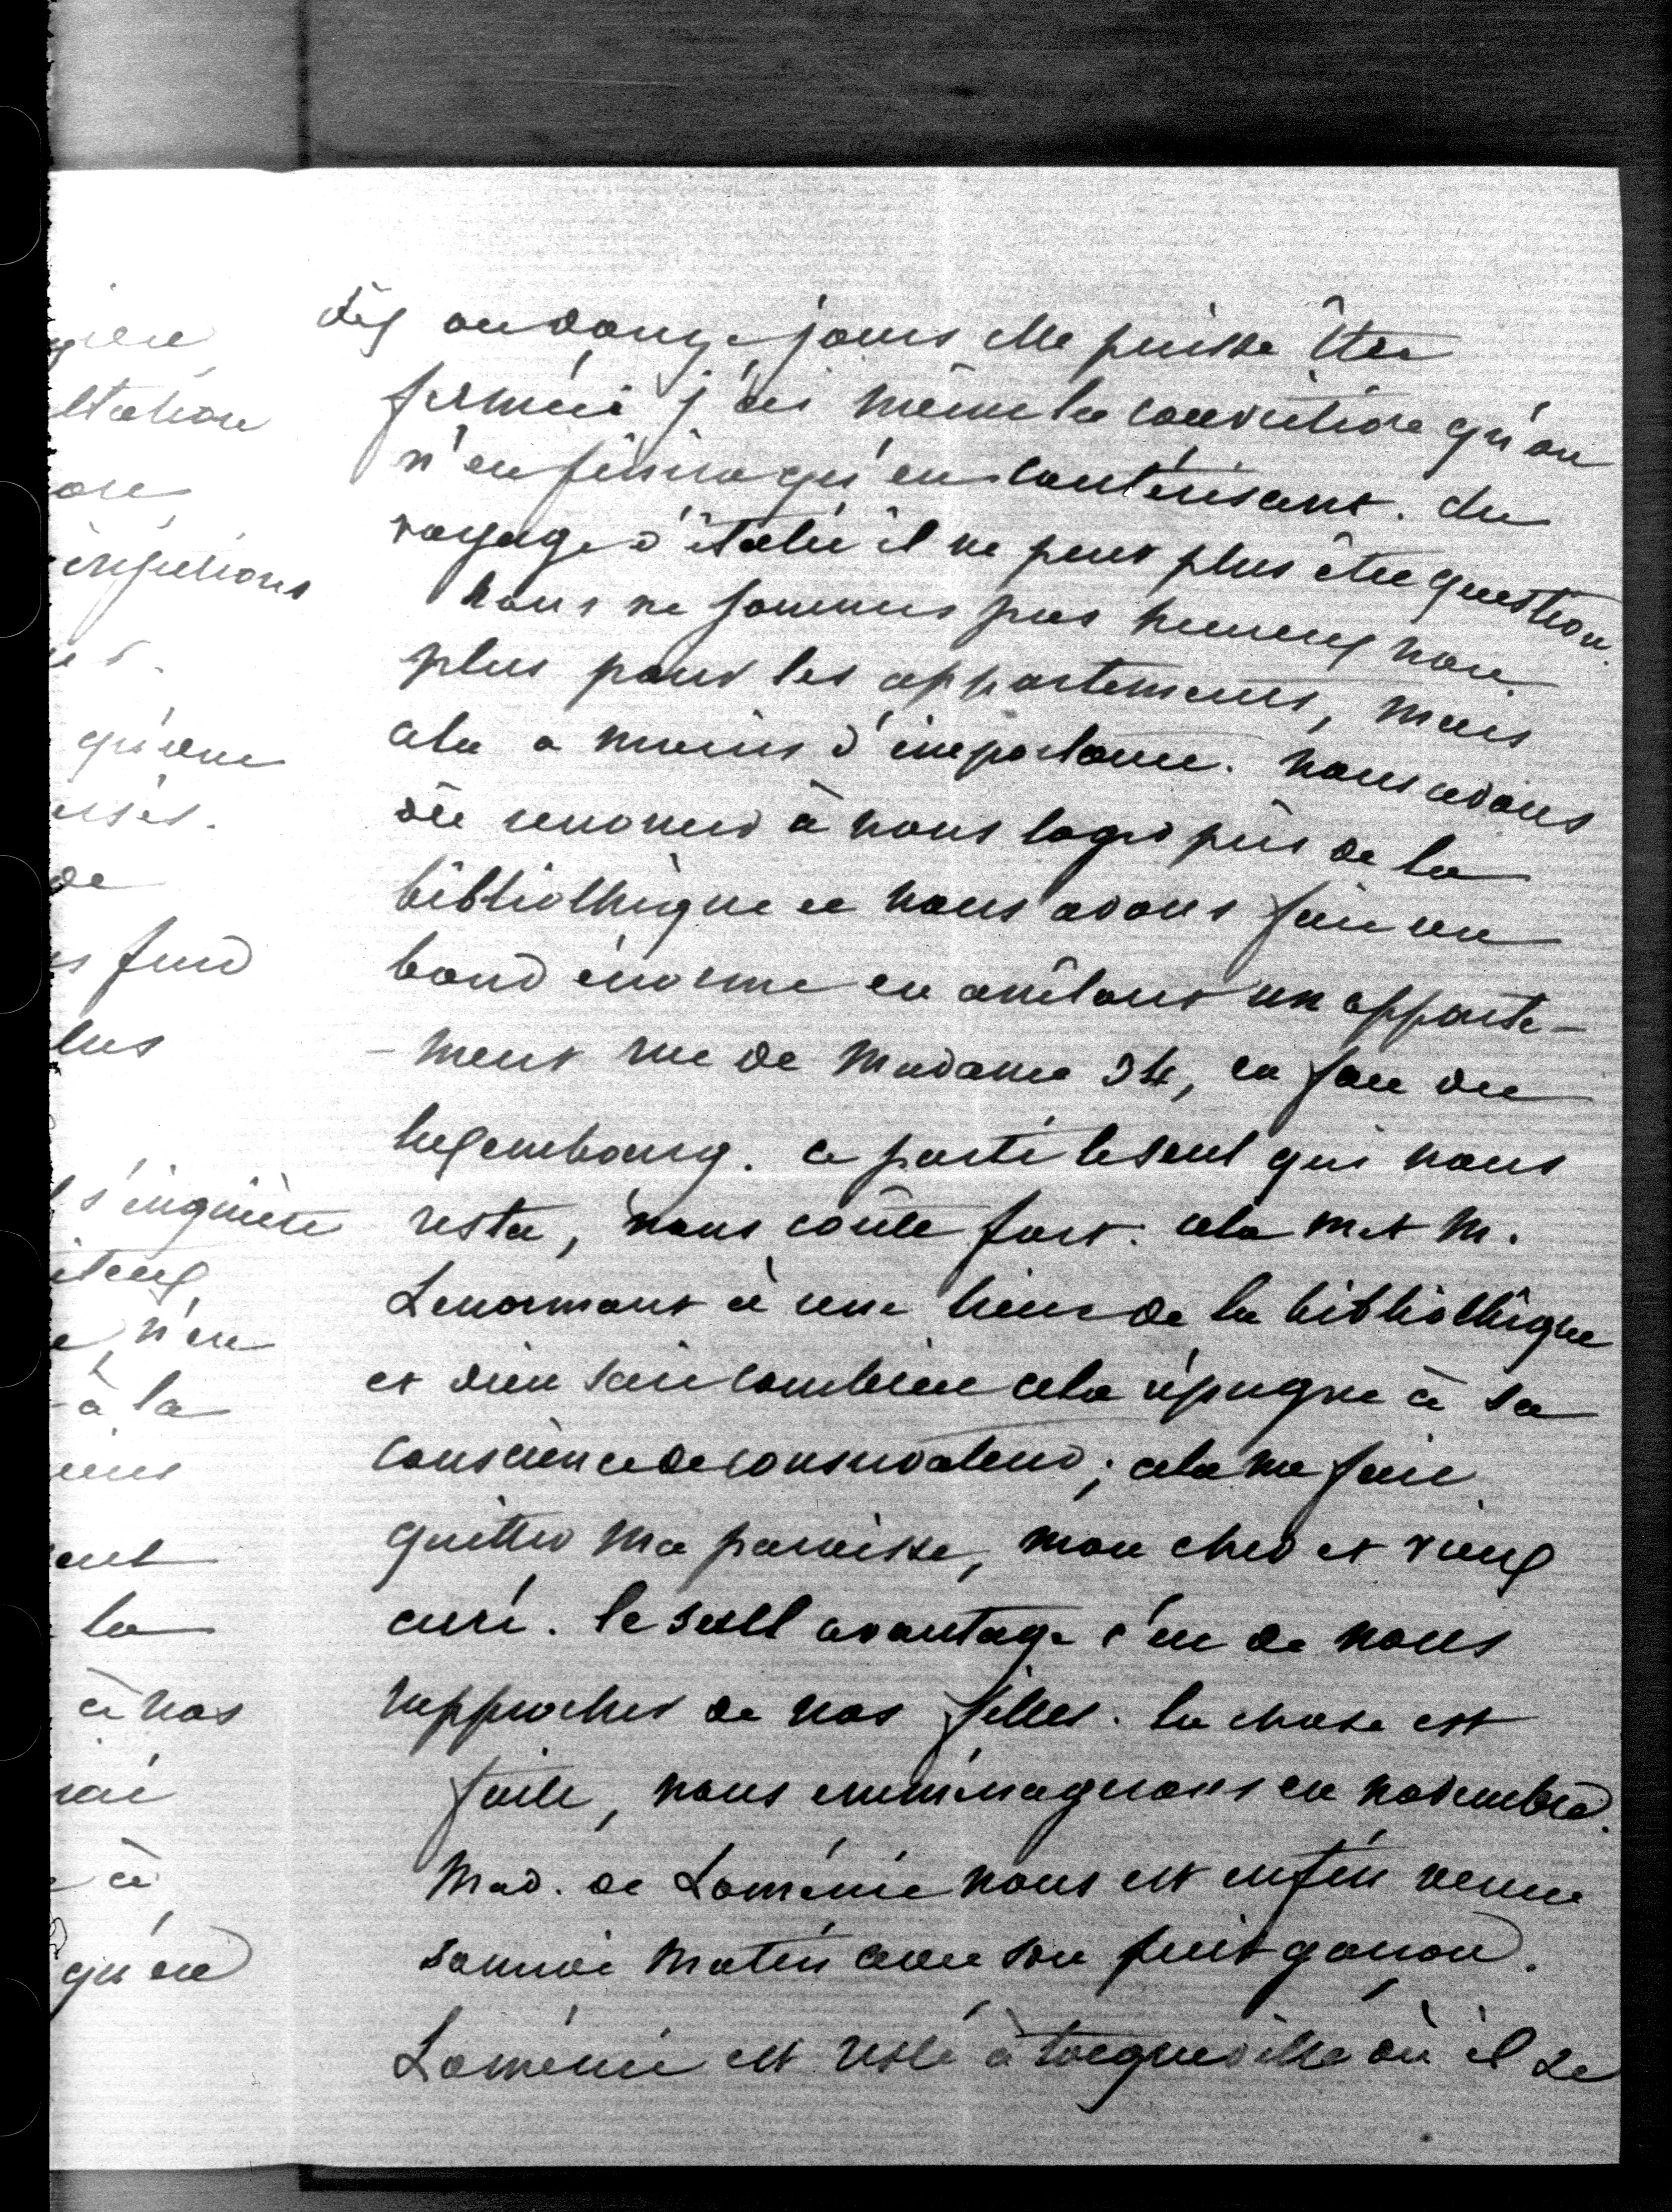 dix ou douze jours elle puisse être
fermée j'ai même la conviction qu'on
n'en finira qu'en cautérisant. du
voyage d'italie il ne peut plus être question.
nous ne sommes pas heureux non
plus pour les appartements, mais
cela a moins d'importance. nous avons
dû renoncer à nous loger près de la
bibliothèque et nous avons fait un
bond énorme en arrêtant un apparte-
-ment rue de Madame 34, en face du
luxembourg. ce parti le seul qui nous
resta, nous coûte fort. cela met M.
Lenormant à une lieue de la bibliothèque
et dieu sait combien cela répugne à sa
conscience de conservateur; cela me fait
quitter ma paroisse, mon cher et vieux
curé. le seul avantage c'en de nous
rapprocher de nos filles. la chose est
faite, nous emménagerons en novembre.
Mad. de Loménie nous est enfin venue
samedi matin avec son petit garçon.
Loménie est resté à tocqueville où il se
ltation
ore
injections
qu'une
de
lus
s'inquiète
n'en
à la
la
à nos
à
qu'en